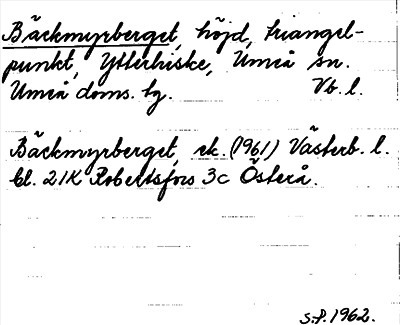 Bäckmyrberget, höjd, triangel-
punkt, Ytterhiske, Umeå sn.
Umeå doms. hg. Vb. l.
Bäckmyrberget, rk. (1961) Västerb. l.
bl. 21K Robertsfors 3c Österå.
S.P. 1962.